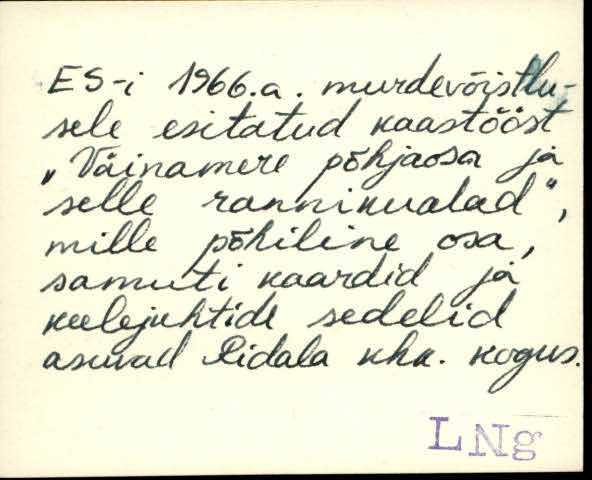 ES-i 1966.a. murdevõistlu-
sele esitatud kaastööst
„Väinamere põhjaosa ja
selle rannikualad",
mille põhiline osa,
samuti kaardid ja
keelejuhtide sedelid
asuvad Ridala khk. kogus.
LNg